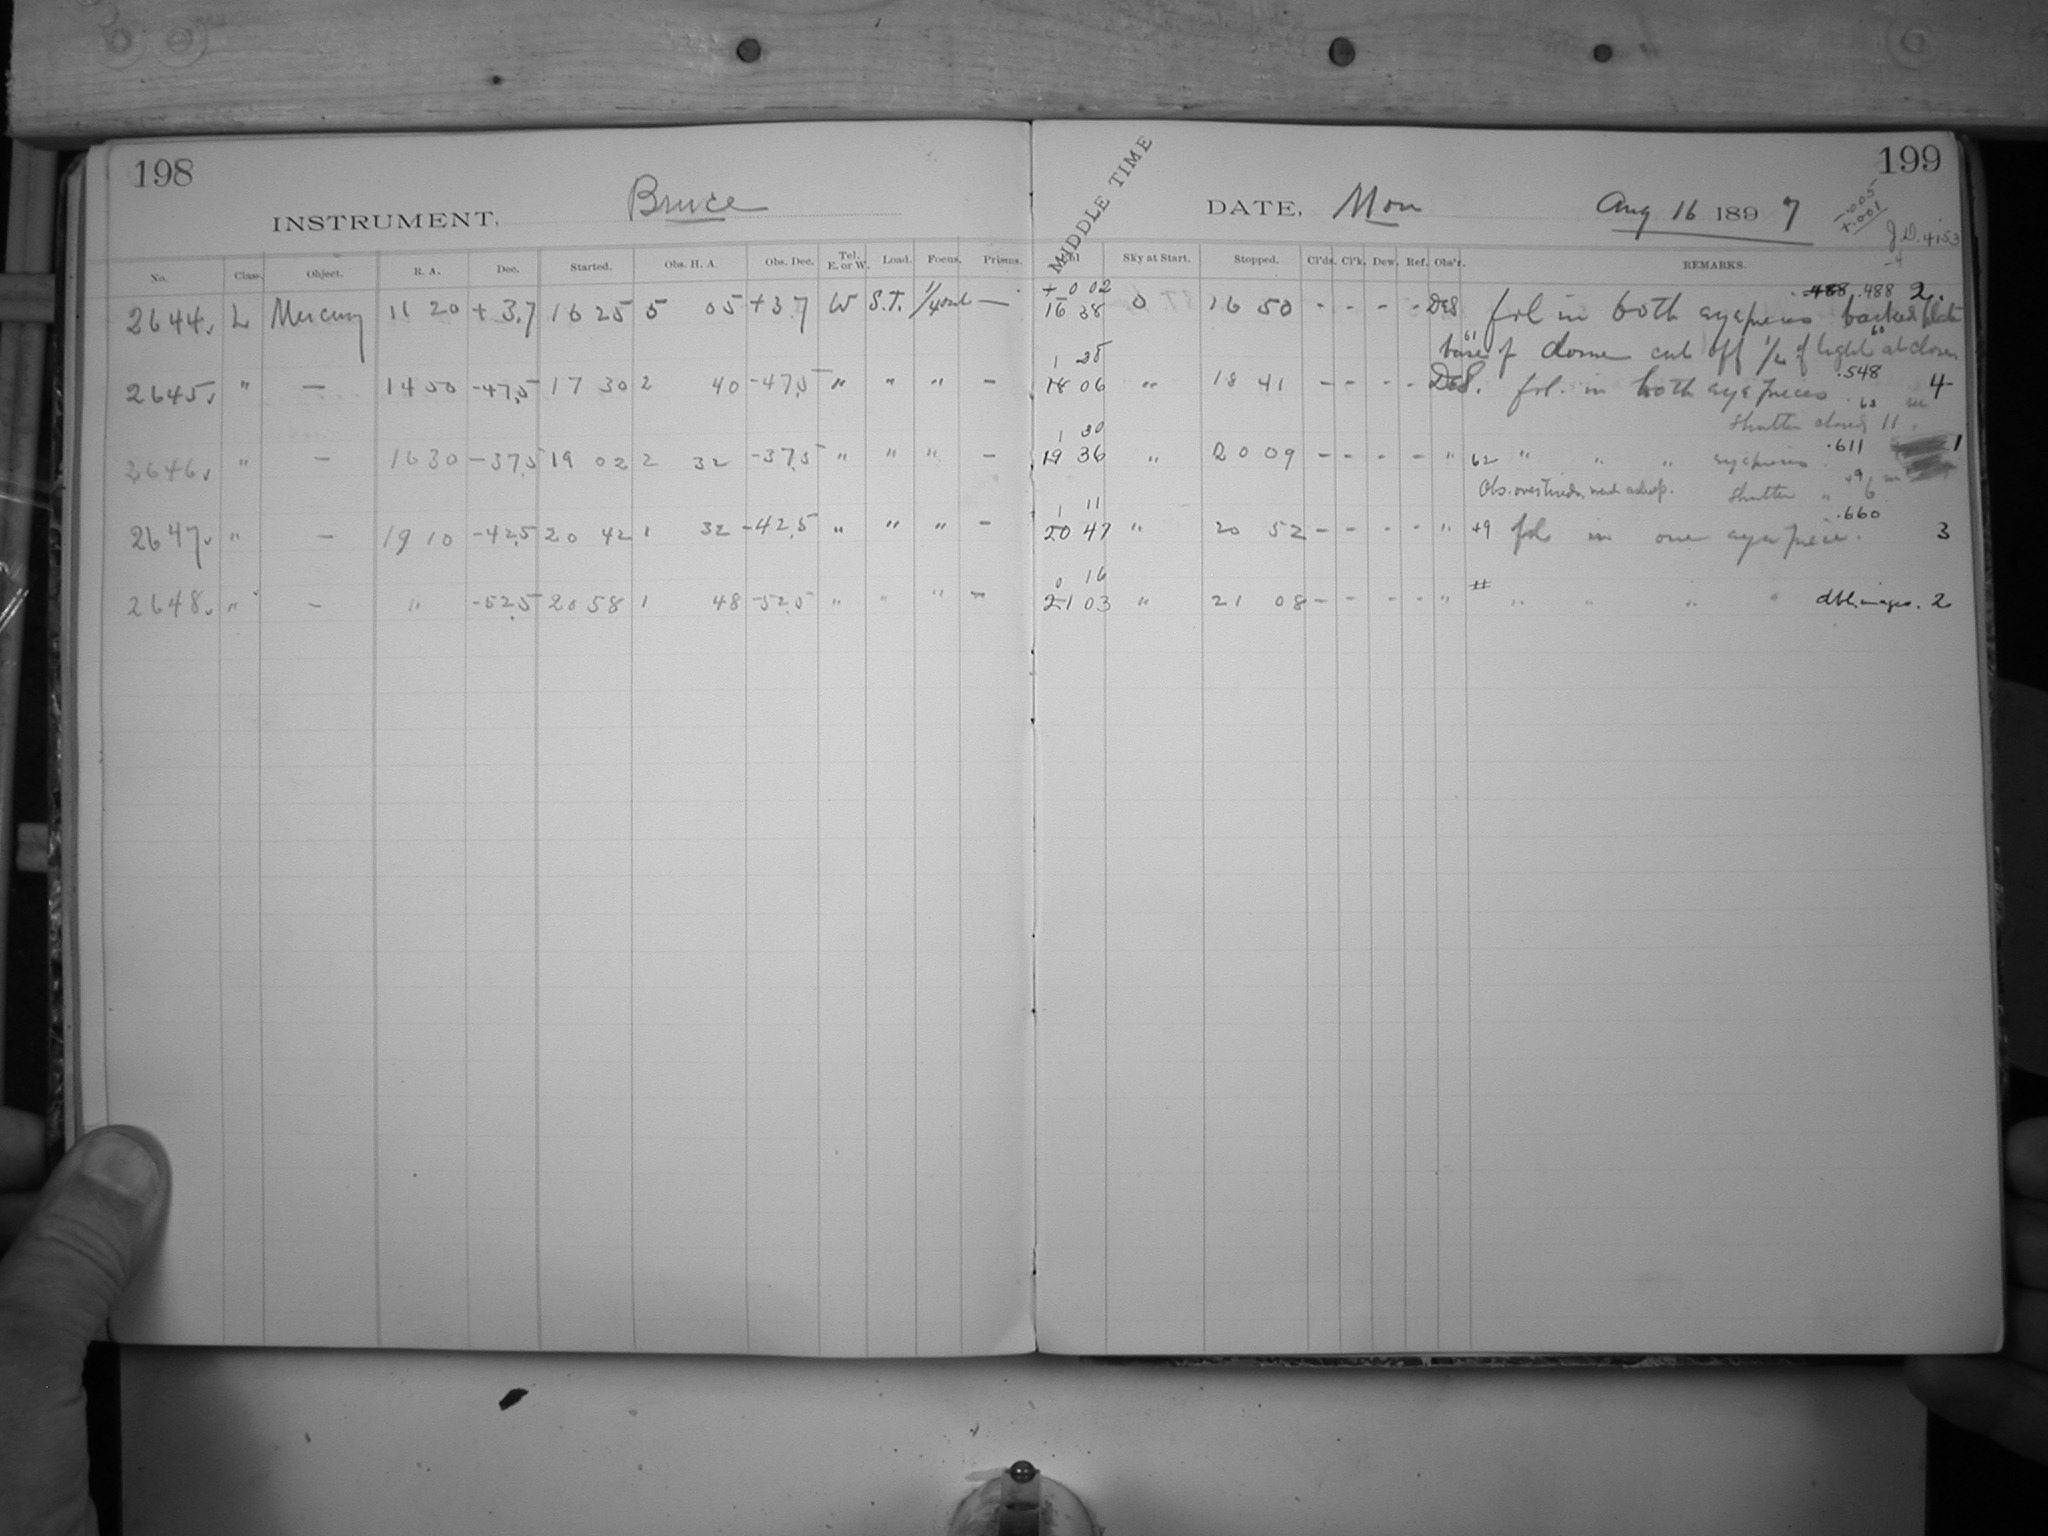 198
INSTRUMENT, Bruce
MIDDLE TIME
DATE, Mon Aug 16 1897
199
-.005
+.001
J.D. 4153
-4
No. Class. Object. R. A. Dec. Started. Obs. H. A. Obs. Dec. Tel. E. or W. Load. Focus. Prisms. Sky at Start. Stopped. Cl'ds. Cl'k. Dew. Ref. Obs'r. REMARKS.
+0 02 .488 .488 2.
2644 L Mercury 11 20 +3.7 16 25 5 05 +3.7 W S.T. — 16 38 0 16 50 - - - - DeS fol in both eyepieces backed plate
61 base of dome cut off 1/2 of light at close 60
1 28 .548
2645 " — 14 50 -47.5 17 30 2 40 -47.5 " " " — 18 06 " 18 41 - - - - DeS. fol. in both eyepieces 4
Shutter closed 11 m
1 30 .611
2646 " — 16 30 -37.5 19 02 2 32 -37.5 " " " — 19 36 " 20 09 - - - - " 62 " " " eyepieces 1
Obs. overtired, went asleep. Shutter " 6 m +9
1 11 .660
2647 " — 19 10 -42.5 20 42 1 32 -42.5 " " " — 20 47 " 20 52 - - - - " +9 fol in one eyepiece. 3
0 16
2648 " — " -52.5 20 58 1 48 -52.5 " " " — 21 03 " 21 08 - - - - " " " " " dbl. images. 2